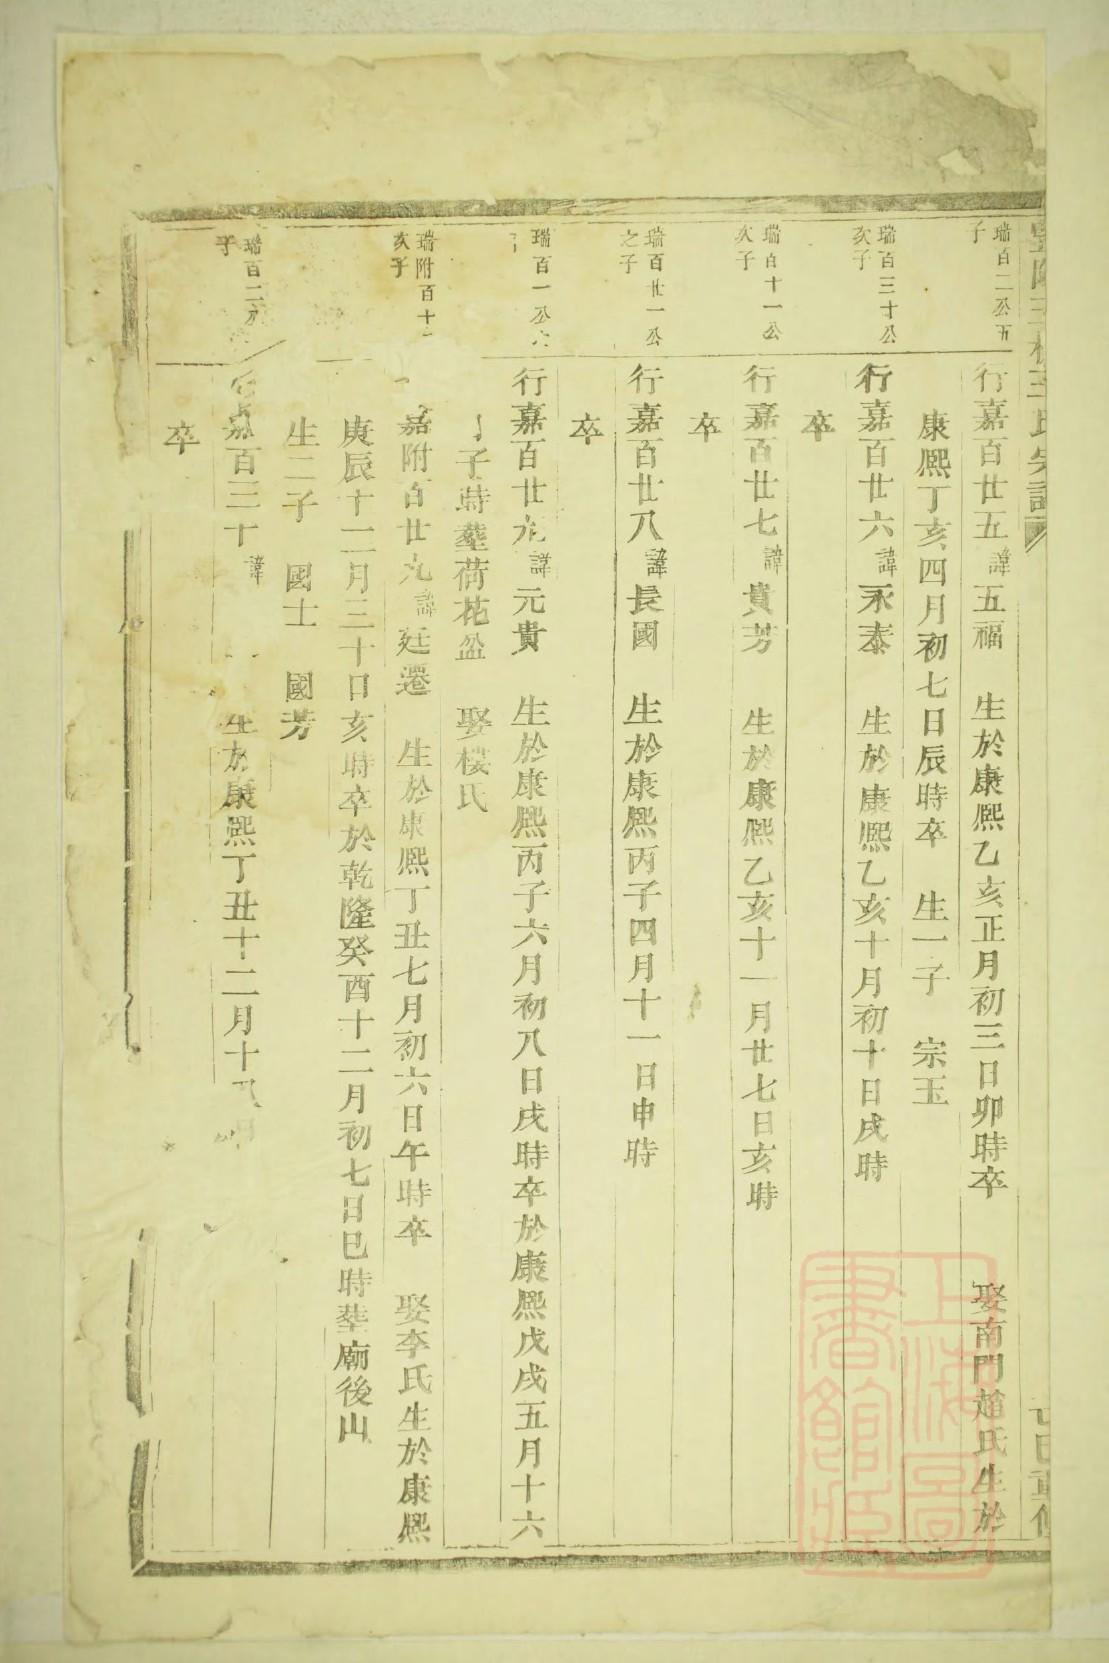 瑞百二公五
子
行嘉百廿五諱五福 生於康熙乙亥正月初三日卯時卒 娶南門趙氏生於
康熙丁亥四月初七日辰時卒 生一子 宗玉
瑞百三十公
次子
行嘉百廿六諱永泰 生於康熙乙亥十月初十日戌時
卒
瑞百十一公
次子
行嘉百廿七諱貴芳 生於康熙乙亥十一月廿七日亥時
卒
瑞百廿一公
之子
行嘉百廿八諱長國 生於康熙丙子四月十一日申時
卒
瑞百一公
行嘉百廿九諱元貴 生於康熙丙子六月初八日戌時卒於康熙戊戌五月十六
子時塟荷花盆 娶樓氏
瑞附百十
次子
嘉附百廿九諱廷遷 生於康熙丁丑七月初六日午時卒 娶李氏生於康熙
庚辰十二月三十日亥時卒於乾隆癸酉十二月初七日巳時塟廟後山
生二子 國士 國芳
瑞百二公
子
嘉百三十諱 生於康熙丁丑十二月十
卒
上海圖書館藏